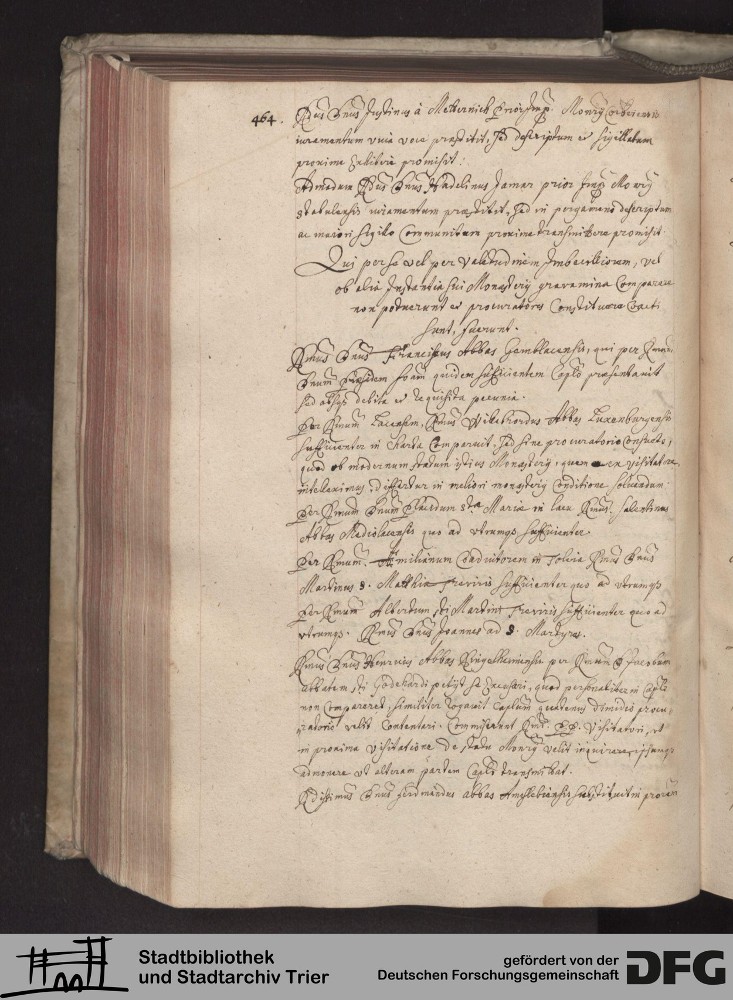 464. Rdus Dnus Justinus à Metternich Prior Imp. Monrÿ Corbeien.
iuramentum viva voce praestitit, sed descriptum et sigillatum
proxime exhibere promisit.
Admodum Rdus Dnus Hadelinus Jamar prior Imp. Monrÿ
Stabulensis iuramentum praestitit, sed in pergameno descriptum
ac maiori sigillo communitum proxime transmittere promisit.
Qui per se vel per valetudinem imbecilliorem, vel
ob alia Instantia sui Monasterÿ gravamina Comparere
non potuerunt et procuratores Constituere coacti
sunt, fuerunt.
Rmus Dnus Franciscus Abbas Gemblacensis, qui per Rmum
Dnum Praesidem quidem sufficientem Caplo praesentavit
sed absqz debita et requisita pecunia.
Per Rmum Lacensem, Rmus Wilibrordus Abbas Luxenburgensis
sufficienter in Charta Comparuit, sed sine procuratorio Consueto,
quod ob modernum statum istius Monasterÿ, quem ex visitatore
intelleximus, differtur in meliori monasterÿ Conditione solvendum.
Per Rmum Dnum Placidum stae Mariae in lacu Rmus. Salentinus
Abbas Mediolacensis quo ad utrumqz sufficienter.
Per Rmum. Æmilianum Coadiutorem in Tolvia Rmus Dnus
Martinus S. Matthiae Treviris sufficienter quo ad utrumqz
Per Rmum Albertum sti Martini Treviris sufficienter quo ad
utrumqz. Rmus Dnus Joannes ad S. Martyres.
Rmus Dnus Henricus Abbas Ringelheimensis per Rmum D. Jacobum
abbatem sti Godehardi petÿt se Excusari, quod personaliter in Caplo
non Compareret, similiter rogavit Caplum quatenus dimidio procu-
ratorio velit Contentari. Commiserunt Rmi PP. Visitatori, ut
in proxima visitatione de statu Monrÿ velit inquirere, ipsumqz
admonere ut alteram partem Caplo transmittat.
Rdissimus Dnus Ferdinandus abbas substituit in procem
Stadtbibliothek
und Stadtarchiv Trier
gefördert von der
Deutschen Forschungsgemeinschaft
DFG